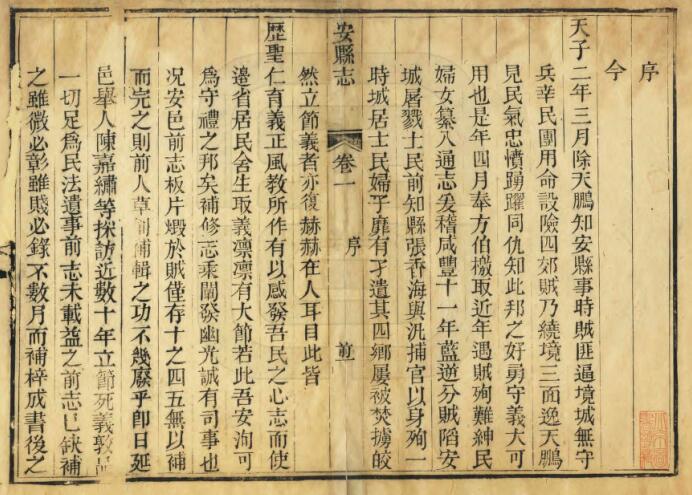 序
今
天子二年三月除天鵬知安縣事時賊匪逼境城無守
兵幸民團用命設險四郊賊乃繞境三面逸天鵬
見民氣忠憤踴躍同仇知此邦之好勇守義大可
用也是年四月奉方伯檄取近年遇賊殉難紳民
婦女纂入通志爰稽咸豐十一年藍逆分賊陷安
城屠戮士民前知縣張香海與汛捕官以身殉一
時城居士民婦孚靡有孑遺其四鄉屢被焚擄皎
然立節義者亦復赫赫在人耳目此皆
安縣志
卷一
序
前
歷聖仁育義正風教所作有以感發吾民之心志而使
邊省居民舍生取義凛凛有大節若此吾安洵可
為守禮之邦矣補修志乘闡發幽光誠有司事也
况安邑前志板片燬於賊僅存十之四五無以補
而完之則前人草創輯之功不幾廢乎卽日延
邑舉人陳嘉繡等採訪近數十年立節死義敦
一切足為民法遺事前志未載益之前志已缺補
之雖微必彰雖賤必錄不數月而補梓成書後之